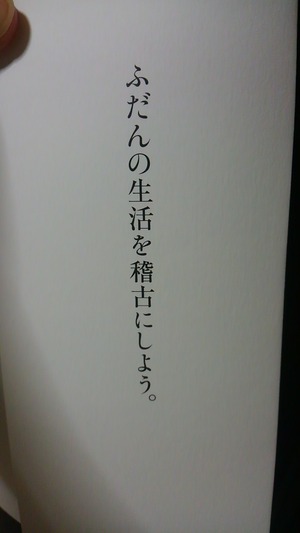 ふだんの生活を稽古にしよう。